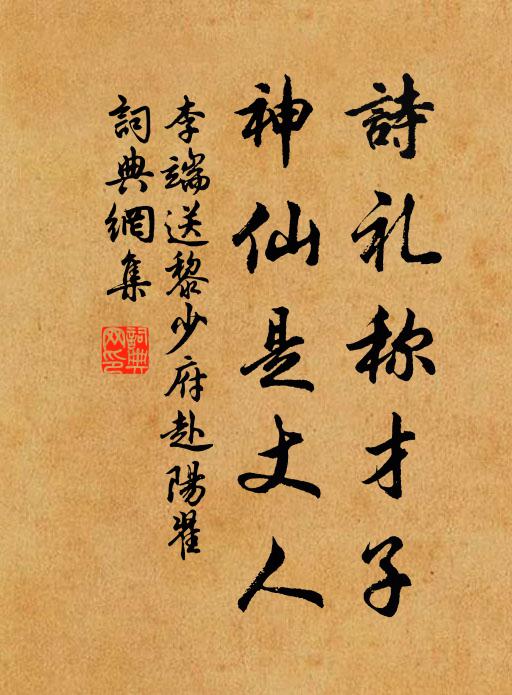 詩礼称才子
神仙是丈人
李端送黎少府赴陽翟
詞典網集
詞典网印